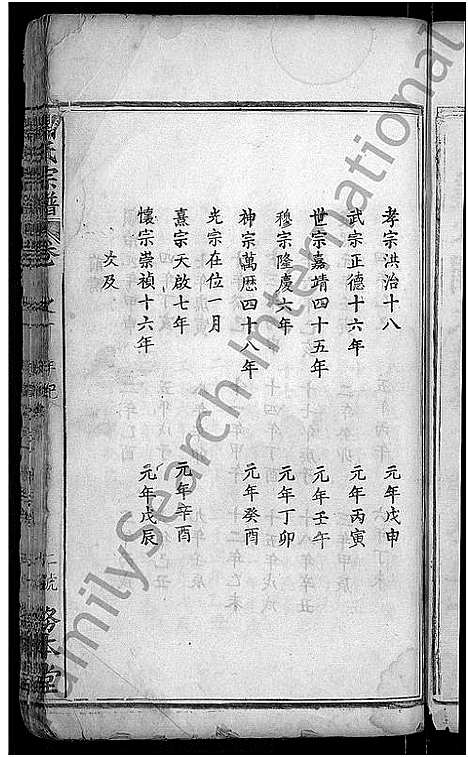 孝宗洪治十八 元年戊申
武宗正德十六年 元年丙寅
世宗嘉靖四十五年 元年壬午
穆宗隆慶六年 元年丁卯
神宗萬厯四十八年 元年癸酉
光宗在位一月
熹宗天啟七年 元年辛酉
懷宗崇禎十六年 元年戊辰
次及
氏宗譜
年紀
務本堂
FamilySearch International